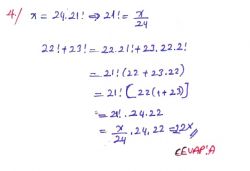 4./ x = 24.21! ⇒ 21! = x/24
22! + 23! = 22.21! + 23.22.2!
= 21! (22 + 23.22)
= 21! [22(1+23)]
= 21! . 24.22
= x/24 . 24.22 = 22x
CEVAP:A